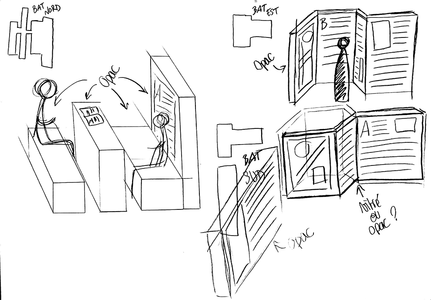 BAT
NORD
opac
BAT
EST
opac
B
A
BAT
SUD
opac
vitré
ou
opac ?